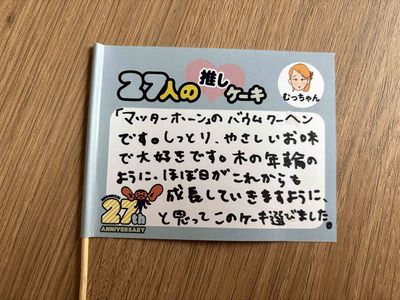 27人の推しケーキ
むっちゃん
「マッターホーン」のバウムクーヘン
です。しっとり、やさしいお味
で大好きです。木の年輪の
ように、ほぼ日がこれからも
成長していきますように、
と思ってこのケーキ選びました。
27th
ANNIVERSARY